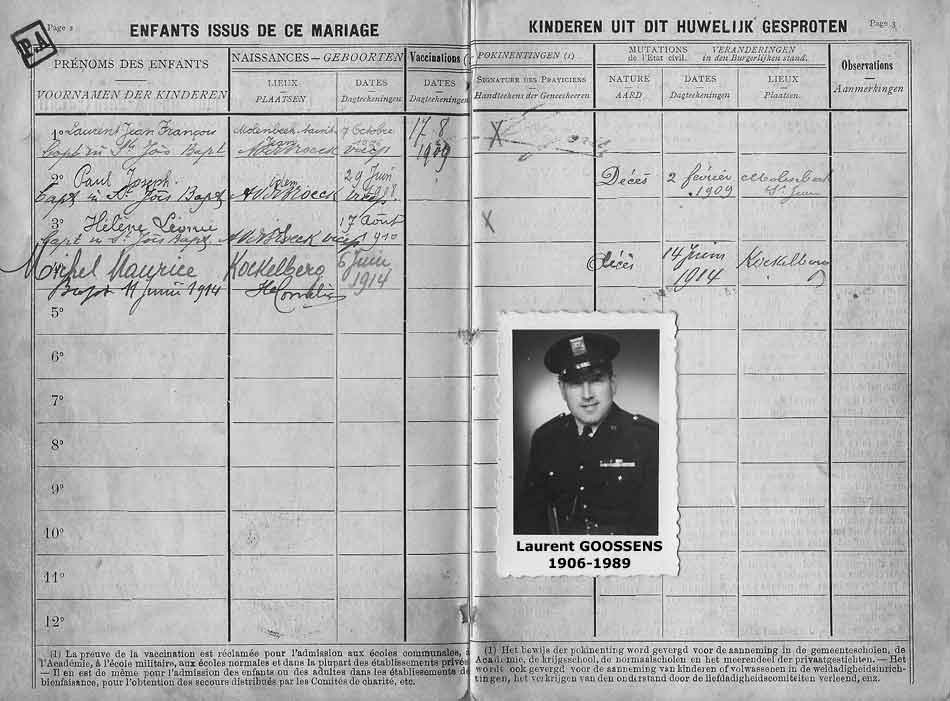 Page 2
P&A
ENFANTS ISSUS DE CE MARIAGE
PRÉNOMS DES ENFANTS
VOORNAMEN DER KINDEREN
NAISSANCES — GEBOORTEN
LIEUX
PLAATSEN
DATES
Dagteekeningen
Vaccinations (1)
DATES
Dagteekeningen
1° Laurent Jean François
Molenbeek
7 Octobre
17 8
1909
Bapt in St Jôis Bapt
2° Paul Joseph
29 Juin
Bapt in St Jôis Bapt
3°
Hélène Léonie
17 Août
Bapt in St Jôis Bapt
1910
Michel Maurice
Koekelberg
6 Juin
1914
Bapt 11 Juin 1914
5°
6°
7°
8°
9°
10°
11°
12°
(1) La preuve de la vaccination est réclamée pour l'admission aux écoles communales, à
l'Académie, à l'école militaire, aux écoles normales et dans la plupart des établissements privés
— Il en est de même pour l'admission des enfants ou des adultes dans les établissements de
bienfaisance, pour l'obtention des secours distribués par les Comités de charité, etc.
KINDEREN UIT DIT HUWELIJK GESPROTEN
Page 3
POKINENTINGEN (1)
SIGNATURE DES PRATICIENS
Handteekens der Geneesheeren
MUTATIONS
de l'État civil.
VERANDERINGEN
in den Burgerlijken stand.
NATURE
AARD
DATES
Dagteekeningen
LIEUX
Plaatsen.
Observations
Aanmerkingen
X
Décès
2 février
1909
Molenbeek
St Jean
X
décès
14 Juin
1914
Koekelberg
Laurent GOOSSENS
1906-1989
(1) Het bewijs der pokinenting word gevergd voor de aanneming in de gemeentescholen, de
Academie, de krijgsschool, de normaalscholen en het meerendeel der privaatgestichten. — Het
wordt ook gevergd voor de aanneming van kinderen of volwassenen in de weldadigheidsinrich-
tingen, het verkrijgen van den onderstand door de liefdadigheidscomiteiten verleend, enz.